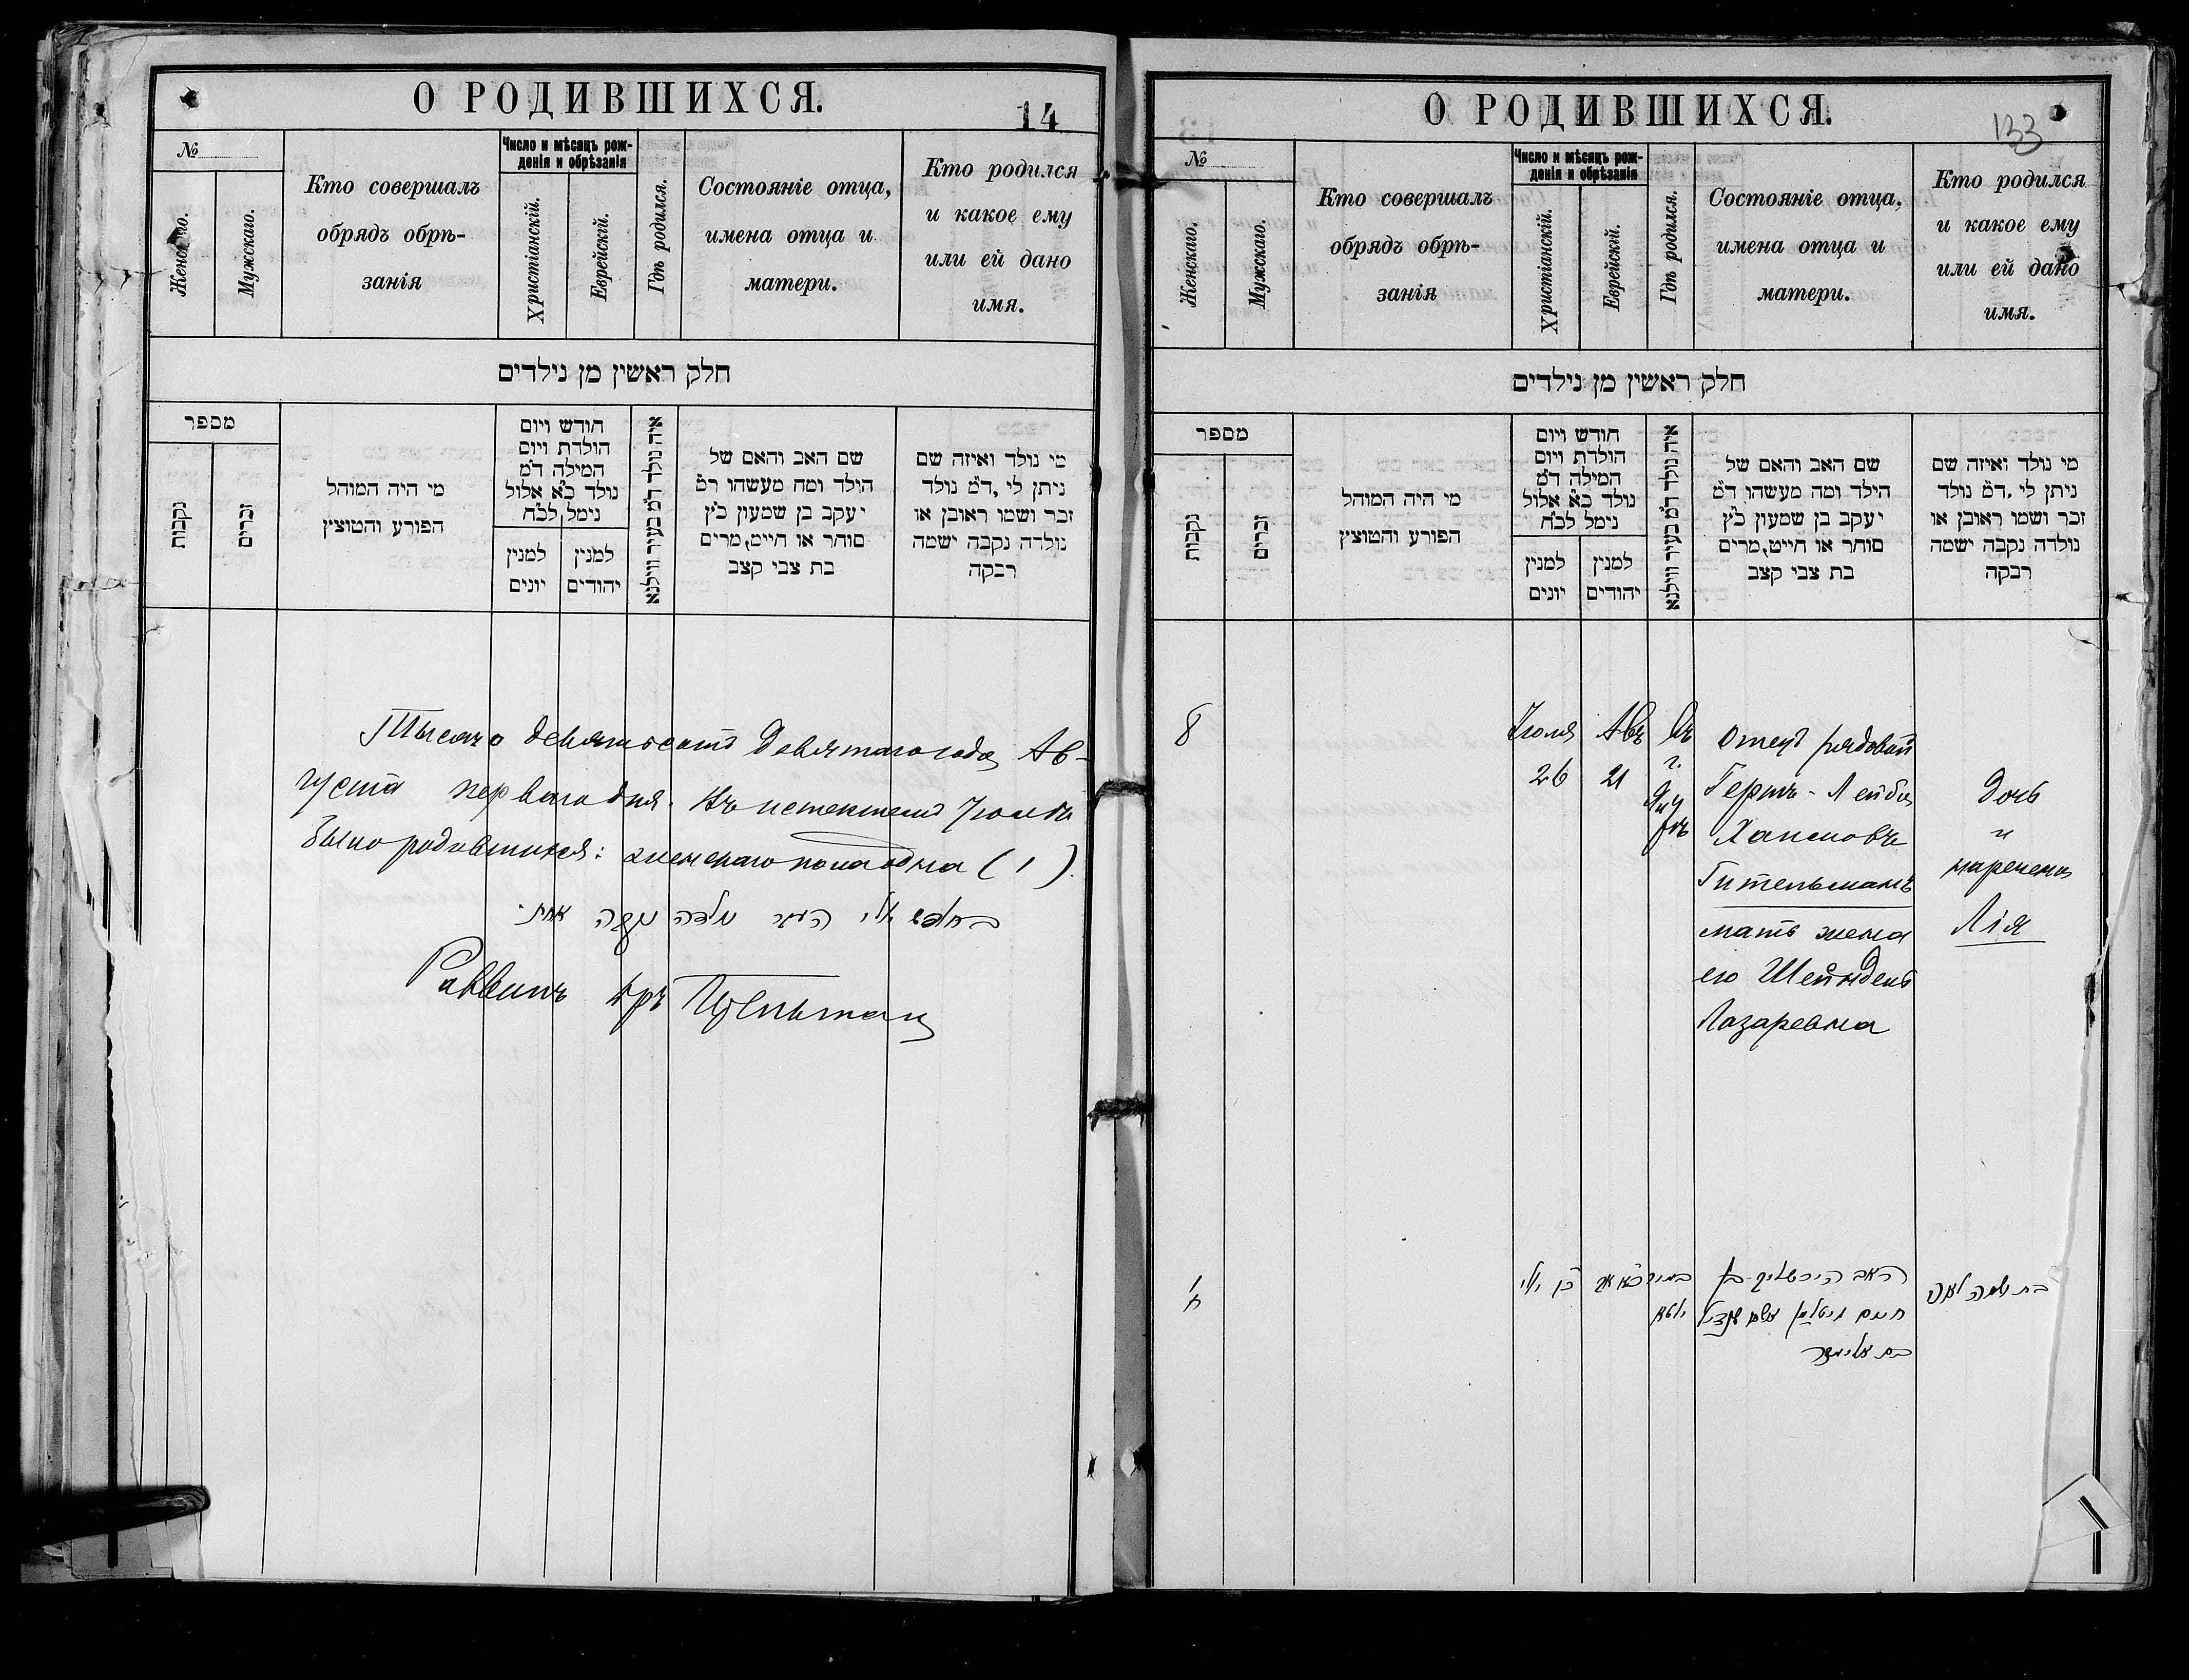 О РОДИВШИХСЯ.
14
№
Женскаго.
Мужскаго.
Кто совершалъ
обрядъ обрѣ-
занія
Число и мѣсяцъ рож-
денія и обрѣзанія
Христіанскій.
Еврейскій.
Гдѣ родился.
Состояніе отца,
имена отца и
матери.
Кто родился
и какое ему
или ей дано
имя.
חלק ראשין מן נילדים
מספר
נקבות
זכרים
מי היה המוהל
הפורע והטוצץ
חודש ויום
הולדת ויום
המילה ד״מ
נולד כ״א אלול
נימל לכ״ח
למנין
יונים
למנין
יהודים
איה נולד ד״מ בעיר ווילנא
שם האב והאם של
הילד ומה מעשהו ד״מ
יעקב בן שמעון כ״ץ
סוחר או חייט,מרים
בת צבי קצב
מי נולד ואיזה שם
ניתן לי ,ד״מ נולד
זכר ושמו ראובן או
נולדה נקבה ישמה
רבקה
Тысяча девятьсотъ девятаго года Ав-
густа перваго дня. Въ истекшемъ Іюлѣ
было родившихся: женскаго пола одна (1).
Раввинъ
О РОДИВШИХСЯ.
133
№
Женскаго.
Мужскаго.
Кто совершалъ
обрядъ обрѣ-
занія
Число и мѣсяцъ рож-
денія и обрѣзанія
Христіанскій.
Еврейскій.
Гдѣ родился.
Состояніе отца,
имена отца и
матери.
Кто родился
и какое ему
или ей дано
имя.
חלק ראשין מן נילדים
מספר
נקבות
זכרים
מי היה המוהל
הפורע והטוצץ
חודש ויום
הולדת ויום
המילה ד״מ
נולד כ״א אלול
נימל לכ״ח
למנין
יונים
למנין
יהודים
איה נולד ד״מ בעיר ווילנא
שם האב והאם של
הילד ומה מעשהו ד״מ
יעקב בן שמעון כ״ץ
סוחר או חייט,מרים
בת צבי קצב
מי נולד ואיזה שם
ניתן לי ,ד״מ נולד
זכר ושמו ראובן או
נולדה נקבה ישמה
רבקה
8
Іюля
26
Авъ
21
Въ
г.
Отецъ рядовой
Герть-Лейба
Хаимовъ
Гительманъ
мать жена
его Шейндель
Лазаревна
Дочь
и
наречена
Лія
האב הירש ליב בן
חיים גיטלמן
בת
בת שמה לאה